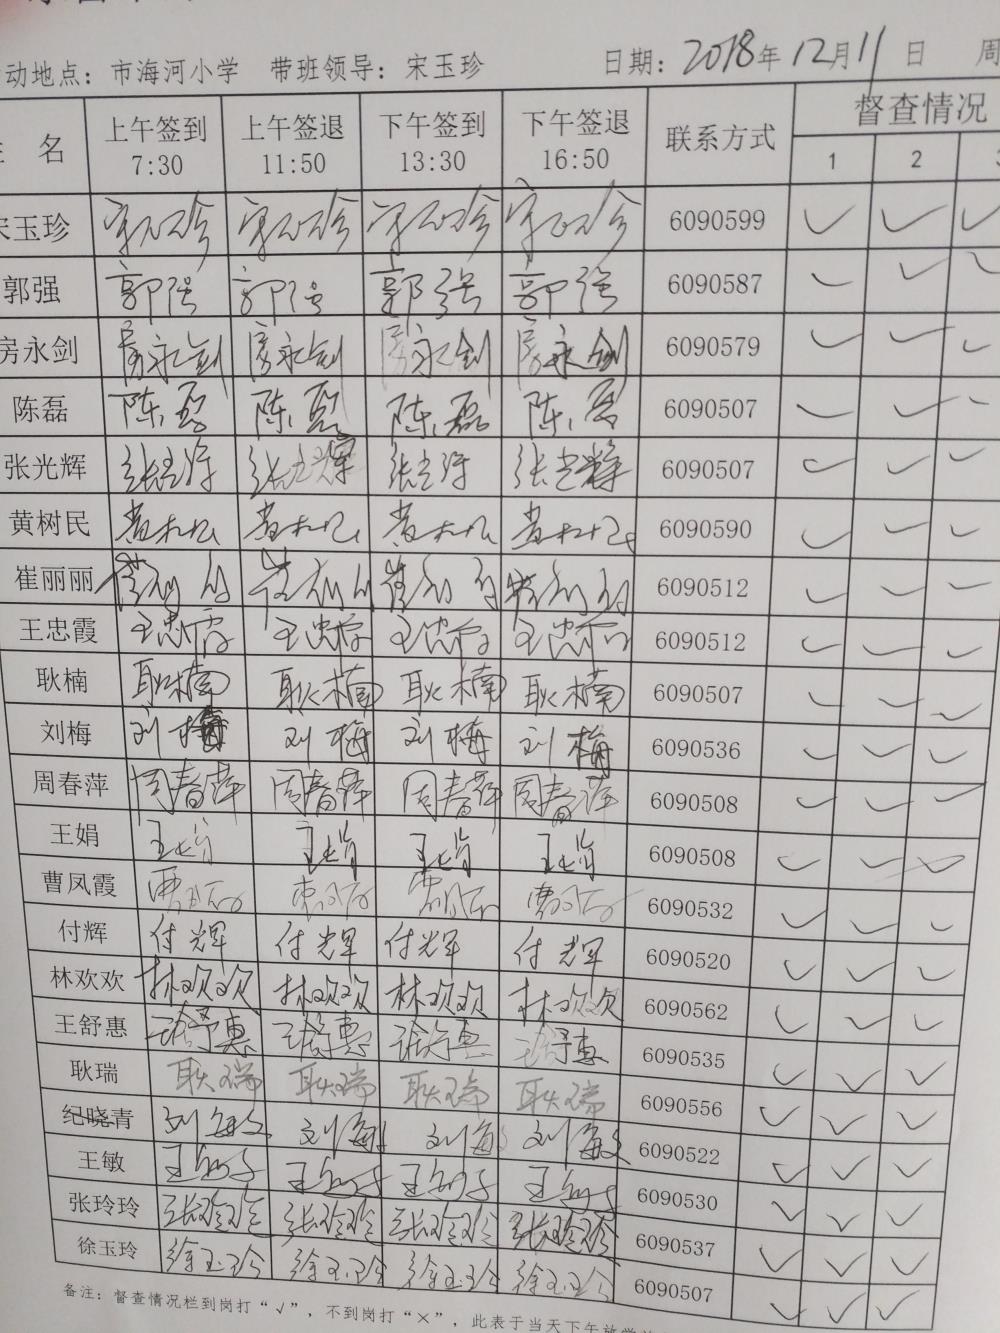 动地点：市海河小学 带班领导：宋玉珍 日期：2018年12月11日 周
名 上午签到 7:30 上午签退 11:50 下午签到 13:30 下午签退 16:50 联系方式 督查情况 1 2 3
宋玉珍 宋玉珍 宋玉珍 宋玉珍 宋玉珍 6090599 ✓ ✓ ✓
郭强 郭强 郭强 郭强 郭强 6090587 ✓ ✓ ✓
房永剑 房永剑 房永剑 房永剑 房永剑 6090579 ✓ ✓ ✓
陈磊 陈磊 陈磊 陈磊 陈磊 6090507 ✓ ✓ ✓
张光辉 张光辉 张光辉 张光辉 张光辉 6090507 ✓ ✓ ✓
黄树民 黄树民 黄树民 黄树民 黄树民 6090590 ✓ ✓ ✓
崔丽丽 崔丽丽 崔丽丽 崔丽丽 崔丽丽 6090512 ✓ ✓ ✓
王忠霞 王忠霞 王忠霞 王忠霞 王忠霞 6090512 ✓ ✓ ✓
耿楠 耿楠 耿楠 耿楠 耿楠 6090507 ✓ ✓ ✓
刘梅 刘梅 刘梅 刘梅 刘梅 6090536 ✓ ✓ ✓
周春萍 周春萍 周春萍 周春萍 周春萍 6090508 ✓ ✓ ✓
王娟 王娟 王娟 王娟 王娟 6090508 ✓ ✓ ✓
曹凤霞 曹凤霞 曹凤霞 曹凤霞 曹凤霞 6090532 ✓ ✓ ✓
付辉 付辉 付辉 付辉 付辉 6090520 ✓ ✓ ✓
林欢欢 林欢欢 林欢欢 林欢欢 林欢欢 6090562 ✓ ✓ ✓
王舒惠 王舒惠 王舒惠 王舒惠 王舒惠 6090535 ✓ ✓ ✓
耿瑞 耿瑞 耿瑞 耿瑞 耿瑞 6090556 ✓ ✓ ✓
纪晓青 刘 刘 刘 刘 6090522 ✓ ✓ ✓
王敏 王 王 王 王 6090530 ✓ ✓ ✓
张玲玲 张玲玲 张玲玲 张玲玲 张玲玲 6090537 ✓ ✓ ✓
徐玉玲 徐玉玲 徐玉玲 徐玉玲 徐玉玲 6090507 ✓ ✓ ✓
备注：督查情况栏到岗打“√”，不到岗打“×”，此表于当天下午放学